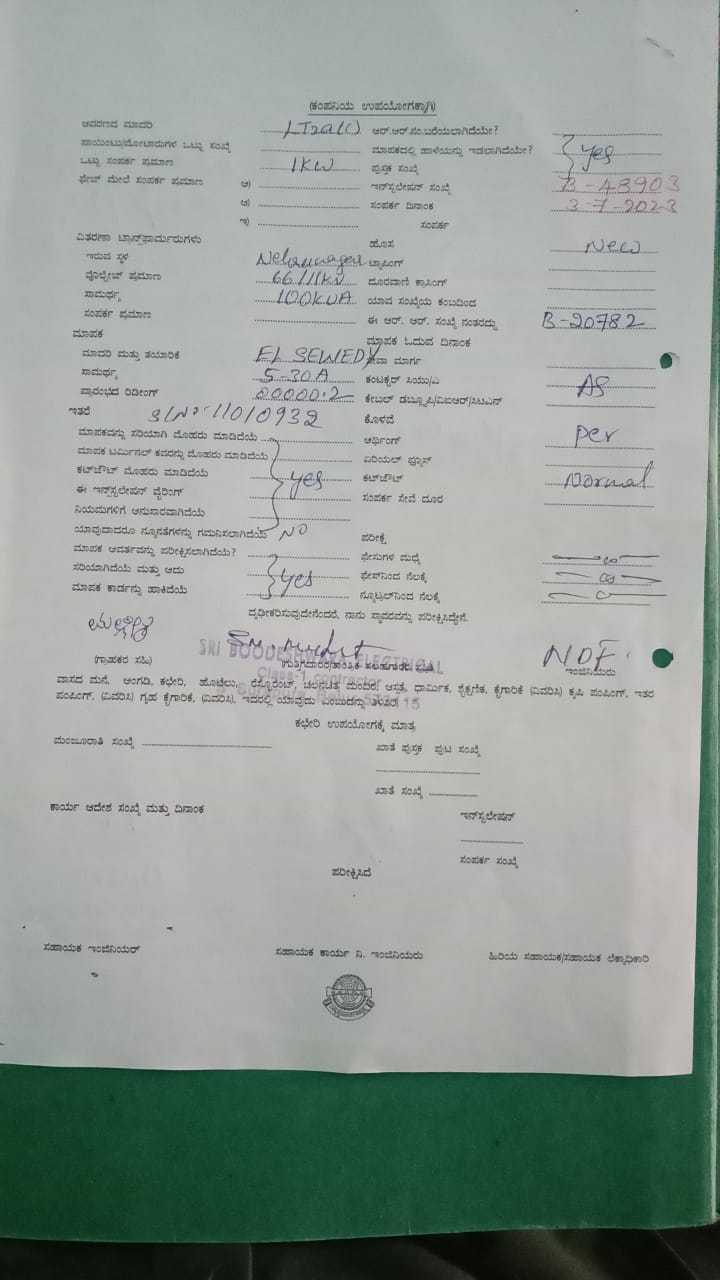 (ಕಂಪನಿಯ ಉಪಯೋಗಕ್ಕಾಗಿ)
ಆವರಣದ ಮಾದರಿ LT2a(i) ಆರ್.ಆರ್.ನಂ.ಬರೆಯಲಾಗಿದೆಯೇ?
ಪಾಯಿಂಟು/ಮೋಟಾರುಗಳ ಒಟ್ಟು ಸಂಖ್ಯೆ ಮಾಪಕದಲ್ಲಿ ಹಾಳೆಯನ್ನು ಇಡಲಾಗಿದೆಯೇ? yes
ಒಟ್ಟು ಸಂಪರ್ಕ ಪ್ರಮಾಣ 1KW ಪುಸ್ತಕ ಸಂಖ್ಯೆ
ಫೇಜ್ ಮೇಲೆ ಸಂಪರ್ಕ ಪ್ರಮಾಣ ಅ) ಇನ್‌ಸ್ಟಲೇಷನ್ ಸಂಖ್ಯೆ B-48903
ಆ) ಸಂಪರ್ಕ ದಿನಾಂಕ 3-7-2023
ಇ) ಸಂಪರ್ಕ
ವಿತರಣಾ ಟ್ರಾನ್ಸ್‌ಫಾರ್ಮರುಗಳು ಹೊಸ New
ಇರುವ ಸ್ಥಳ ಟ್ಯಾಪಿಂಗ್
ವೊಲ್ಟೇಜ್ ಪ್ರಮಾಣ 66/11KV ದೂರವಾಣಿ ಕ್ರಾಸಿಂಗ್
ಸಾಮರ್ಥ್ಯ 100KVA ಯಾವ ಸಂಖ್ಯೆಯ ಕಂಬದಿಂದ
ಸಂಪರ್ಕ ಪ್ರಮಾಣ ಈ ಆರ್. ಆರ್. ಸಂಖ್ಯೆ ನಂತರದ್ದು B-20782
ಮಾಪಕ ಮಾಪಕ ಓದುವ ದಿನಾಂಕ
ಮಾದರಿ ಮತ್ತು ತಯಾರಿಕೆ EL SEWEDY ಸೇವಾ ಮಾರ್ಗ
ಸಾಮರ್ಥ್ಯ 5-30A ಕಂಟಕ್ಟರ್ ಸಿಯು/ಎ As
ಪ್ರಾರಂಭದ ರಿಡೀಂಗ್ 00000.2 ಕೇಬಲ್ ಡಬ್ಲ್ಯೂಪಿ/ವಿಐಆರ್/ಸಿಟಿಎಸ್
ಇತರೆ Sl No: 11010932 ಕೊಳವೆ
ಮಾಪಕವನ್ನು ಸರಿಯಾಗಿ ಮೊಹರು ಮಾಡಿದೆಯೆ ಅರ್ಥಿಂಗ್ Per
ಮಾಪಕ ಟರ್ಮಿನಲ್ ಕವರನ್ನು ಮೊಹರು ಮಾಡಿದೆಯೆ ಏರಿಯಲ್ ಫ್ಯೂಸ್
ಕಟ್‌ಔಟ್ ಮೊಹರು ಮಾಡಿದೆಯೆ yes ಕಟ್‌ಔಟ್ Normal
ಈ ಇನ್‌ಸ್ಟಲೇಷನ್ ವೈರಿಂಗ್ ಸಂಪರ್ಕ ಸೇವೆ ದೂರ
ನಿಯಮಗಳಿಗೆ ಅನುಸಾರವಾಗಿದೆಯೆ
ಯಾವುದಾದರೂ ನ್ಯೂನತೆಗಳನ್ನು ಗಮನಿಸಲಾಗಿದೆಯೆ NO ಪರೀಕ್ಷೆ
ಮಾಪಕ ಆವರ್ತವನ್ನು ಪರೀಕ್ಷಿಸಲಾಗಿದೆಯೆ? ಫೇಸುಗಳ ಮಧ್ಯೆ
ಸರಿಯಾಗಿದೆಯೆ ಮತ್ತು ಅದು yes ಫೇಸ್‌ನಿಂದ ನೆಲಕ್ಕೆ
ಮಾಪಕ ಕಾರ್ಡನ್ನು ಹಾಕಿದೆಯೆ ನ್ಯೂಟ್ರಲ್‌ನಿಂದ ನೆಲಕ್ಕೆ
ದೃಢೀಕರಿಸುವುದೇನೆಂದರೆ, ನಾನು ಸ್ಥಾವರವನ್ನು ಪರೀಕ್ಷಿಸಿದ್ದೇನೆ.
SRI BOODESHWARA ELECTRICAL
(ಗ್ರಾಹಕರ ಸಹಿ) ಇಂಜಿನಿಯರು
Class-1 contractor
ವಾಸದ ಮನೆ, ಅಂಗಡಿ, ಕಛೇರಿ, ಹೊಟೇಲು, ರೆಸ್ಟೋರೆಂಟ್, ಚಲನಚಿತ್ರ ಮಂದಿರ, ಆಸ್ಪತ್ರೆ, ಧಾರ್ಮಿಕ, ಶೈಕ್ಷಣಿಕ, ಕೈಗಾರಿಕೆ (ವಿವರಿಸಿ) ಕೃಷಿ ಪಂಪಿಂಗ್, ಇತರ
ಪಂಪಿಂಗ್, (ವಿವರಿಸಿ) ಗೃಹ ಕೈಗಾರಿಕೆ, (ವಿವರಿಸಿ), ಇದರಲ್ಲಿ ಯಾವುದು ಎಂಬುದನ್ನು ತಿಳಿಸಿರಿ
ಕಛೇರಿ ಉಪಯೋಗಕ್ಕೆ ಮಾತ್ರ
ಮಂಜೂರಾತಿ ಸಂಖ್ಯೆ ಖಾತೆ ಪುಸ್ತಕ ಪುಟ ಸಂಖ್ಯೆ
ಖಾತೆ ಸಂಖ್ಯೆ
ಕಾರ್ಯ ಆದೇಶ ಸಂಖ್ಯೆ ಮತ್ತು ದಿನಾಂಕ ಇನ್‌ಸ್ಟಲೇಷನ್
ಸಂಪರ್ಕ ಸಂಖ್ಯೆ
ಪರೀಕ್ಷಿಸಿದೆ
ಸಹಾಯಕ ಇಂಜಿನಿಯರ್ ಸಹಾಯಕ ಕಾರ್ಯ ನಿ. ಇಂಜಿನಿಯರು ಹಿರಿಯ ಸಹಾಯಕ/ಸಹಾಯಕ ಲೆಕ್ಕಾಧಿಕಾರಿ